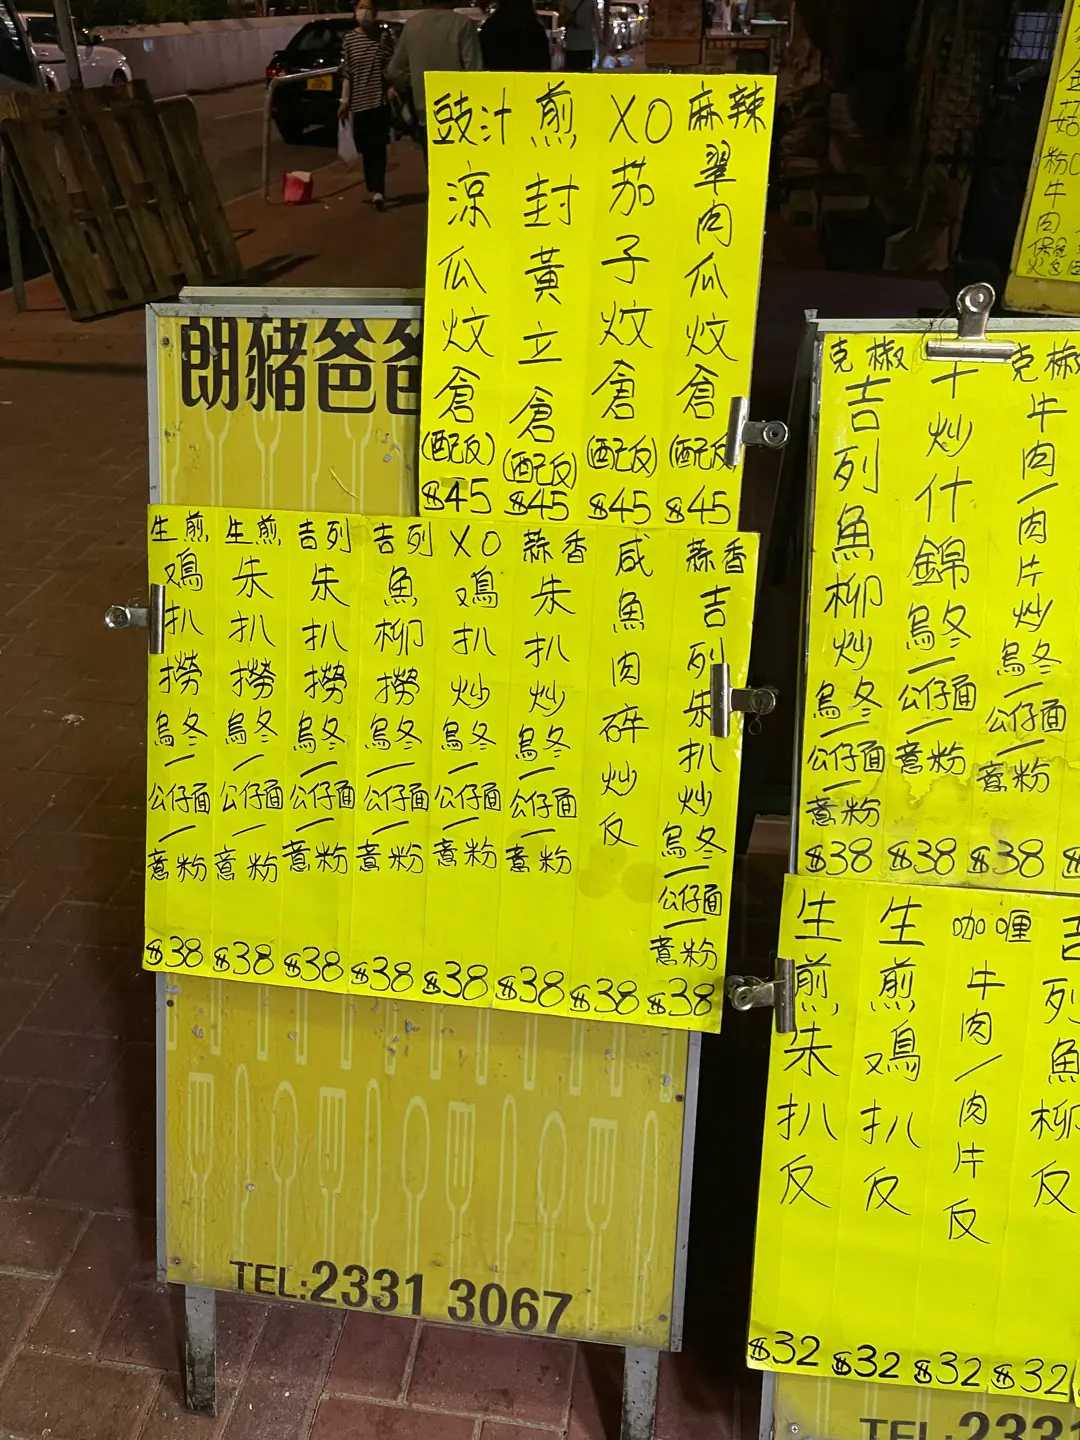 豉汁涼瓜炆倉(配反)$45
煎封黃立倉(配反)$45
XO茄子炆倉(配反)$45
麻辣翠肉瓜炆倉(配反)$45
朗豬爸爸
生煎鳮扒撈烏冬/公仔面/薏粉$38
生煎朱扒撈烏冬/公仔面/薏粉$38
吉列朱扒撈烏冬/公仔面/薏粉$38
吉列魚柳撈烏冬/公仔面/薏粉$38
XO鳮扒炒烏冬/公仔面/薏粉$38
蒜香朱扒炒烏冬/公仔面/薏粉$38
咸魚肉碎炒反$38
蒜香吉列朱扒炒烏冬/公仔面/薏粉$38
TEL:2331 3067
克椒吉列魚柳炒烏冬/公仔面/薏粉$38
干炒什錦烏冬/公仔面/薏粉$38
克椒牛肉/肉片炒烏冬/公仔面/薏粉$38
生煎朱扒反$32
生煎鳮扒反$32
咖喱牛肉/肉片反$32
吉列魚柳反$32
TEL:2331
粉
牛
肉